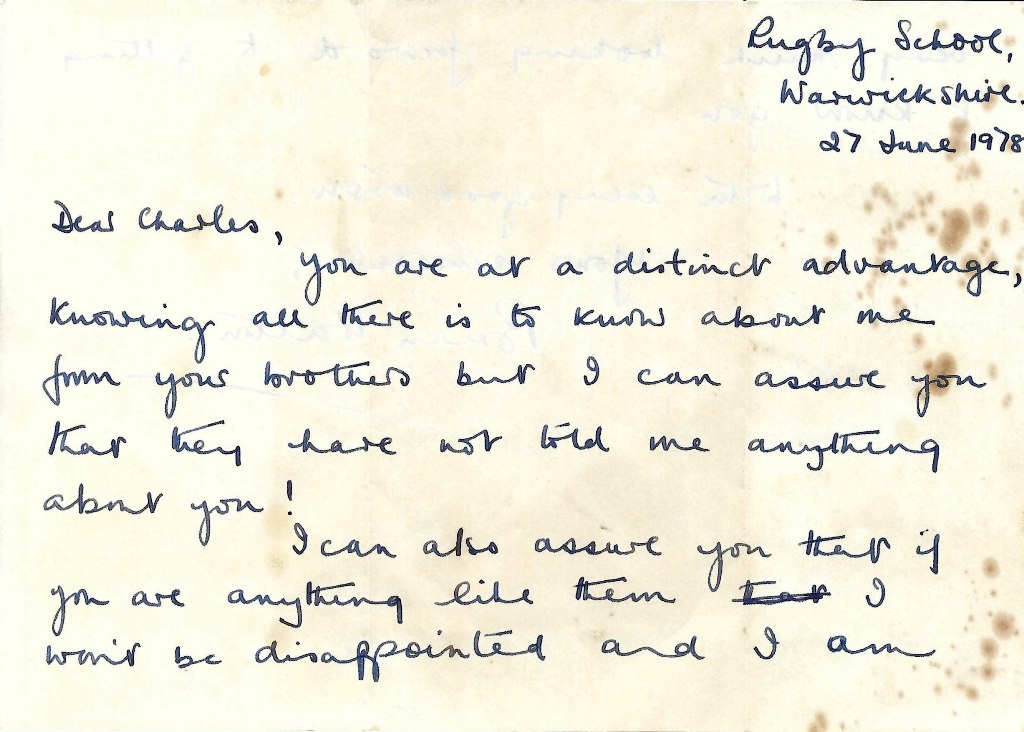 Rugby School,
Warwickshire.
27 June 1978
Dear Charles,
you are at a distinct advantage,
knowing all there is to know about me
from your brothers but I can assure you
that they have not told me anything
about you!
I can also assure you that if
you are anything like them that I
won't be disappointed and I am